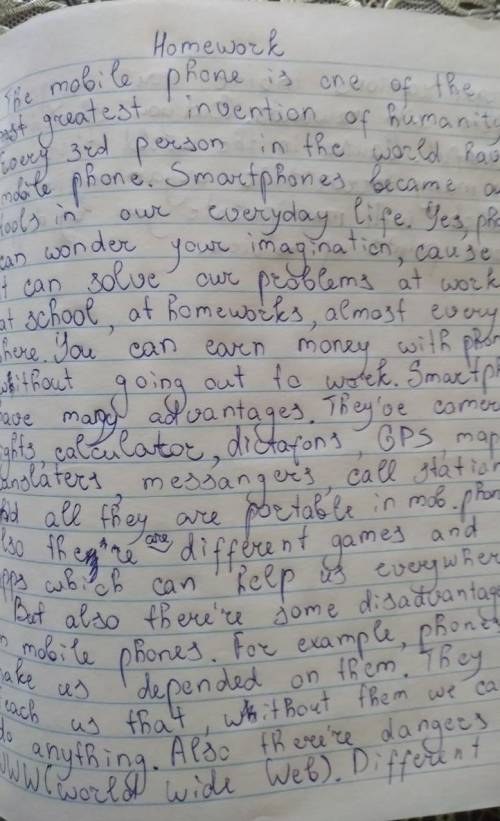 Homework
The mobile phone is one of the
greatest invention of humanity
Every 3rd person in the world has
mobile phone. Smartphones became a
tools in our everyday life. Yes, pho
can wonder your imagination, cause
it can solve our problems at work
at school, at homeworks, almost every
here. You can earn money with phon
without going out to work. Smartph
have many advantages. They've camer
ights, calculator, dictafons, GPS, map
anslaters, messangers, call station
And all they are portable in mob. phon
also there're are different games and
apps which can help us everywher
But also there're some disadvantage
in mobile phones. For example, phones
make us depended on them. They
teach us that, whithout them we ca
do anything. Also there're dangers
WWW (World wide Web). Different